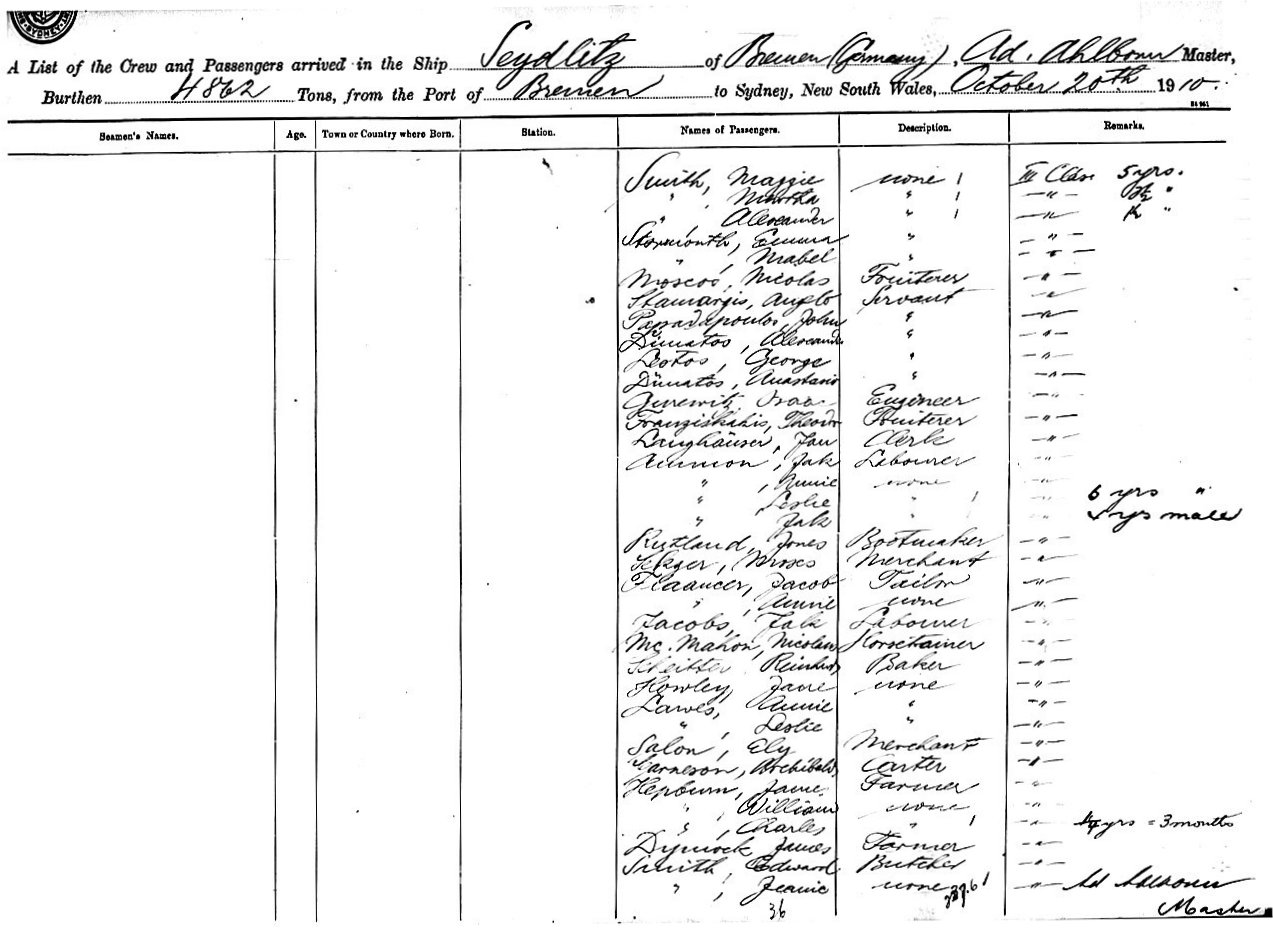 SYDNEY
A List of the Crew and Passengers arrived in the Ship Seydlitz of Bremen (Germany), Ad. Ahlborn Master,
Burthen 4862 Tons, from the Port of Bremen to Sydney, New South Wales, October 20th 1910.
Seamen's Names. Age. Town or Country where Born. Station. Names of Passengers. Description. Remarks.
Smith, Maggie none 1 III Class 5 yrs.
" , Martha " 1 —"— "
" , Alexander " 1 —"— "
Stormonth, Emma " —"—
" , Mabel " —"—
Moscos, Nicolas Fruiterer —"—
Stamargis, Anglo Servant —"—
Papadapoulos, John " —"—
Dimatos, Alexander " —"—
Leotos, George " —"—
Dimatos, Anastasio " —"—
Gurewitz, Isaac Engineer —"—
Franziskakis, Theodor Fruiterer —"—
Langhäuser, Jan Clerk —"—
Ammon, Jak Labourer —"—
" , Annie none —"—
" , Leslie " 1 —"— 6 yrs "
" , Jak " 1 —"— yrs male
Rutland, Jones Bootmaker —"—
Sekger, Moses Merchant —"—
Flaancer, Jacob Tailor —"—
" , Annie none —"—
Jacobs, Falk Labourer —"—
Mc. Mahon, Nicolas Horsetrainer —"—
Scheitter Reinhard Baker —"—
Howley, Jane none —"—
Lawes, Annie " —"—
" , Leslie " —"—
Salon, Ely Merchant —"—
Garneson, Archibald Carter —"—
Hepburn, Jame Farmer —"—
" , William none —"—
" , Charles " 1 —"— yrs = 3 months
Dymock James Farmer —"—
Smith, Edward Butcher —"—
" , Jeanie none —"— Ad Ahlborn
36 Master